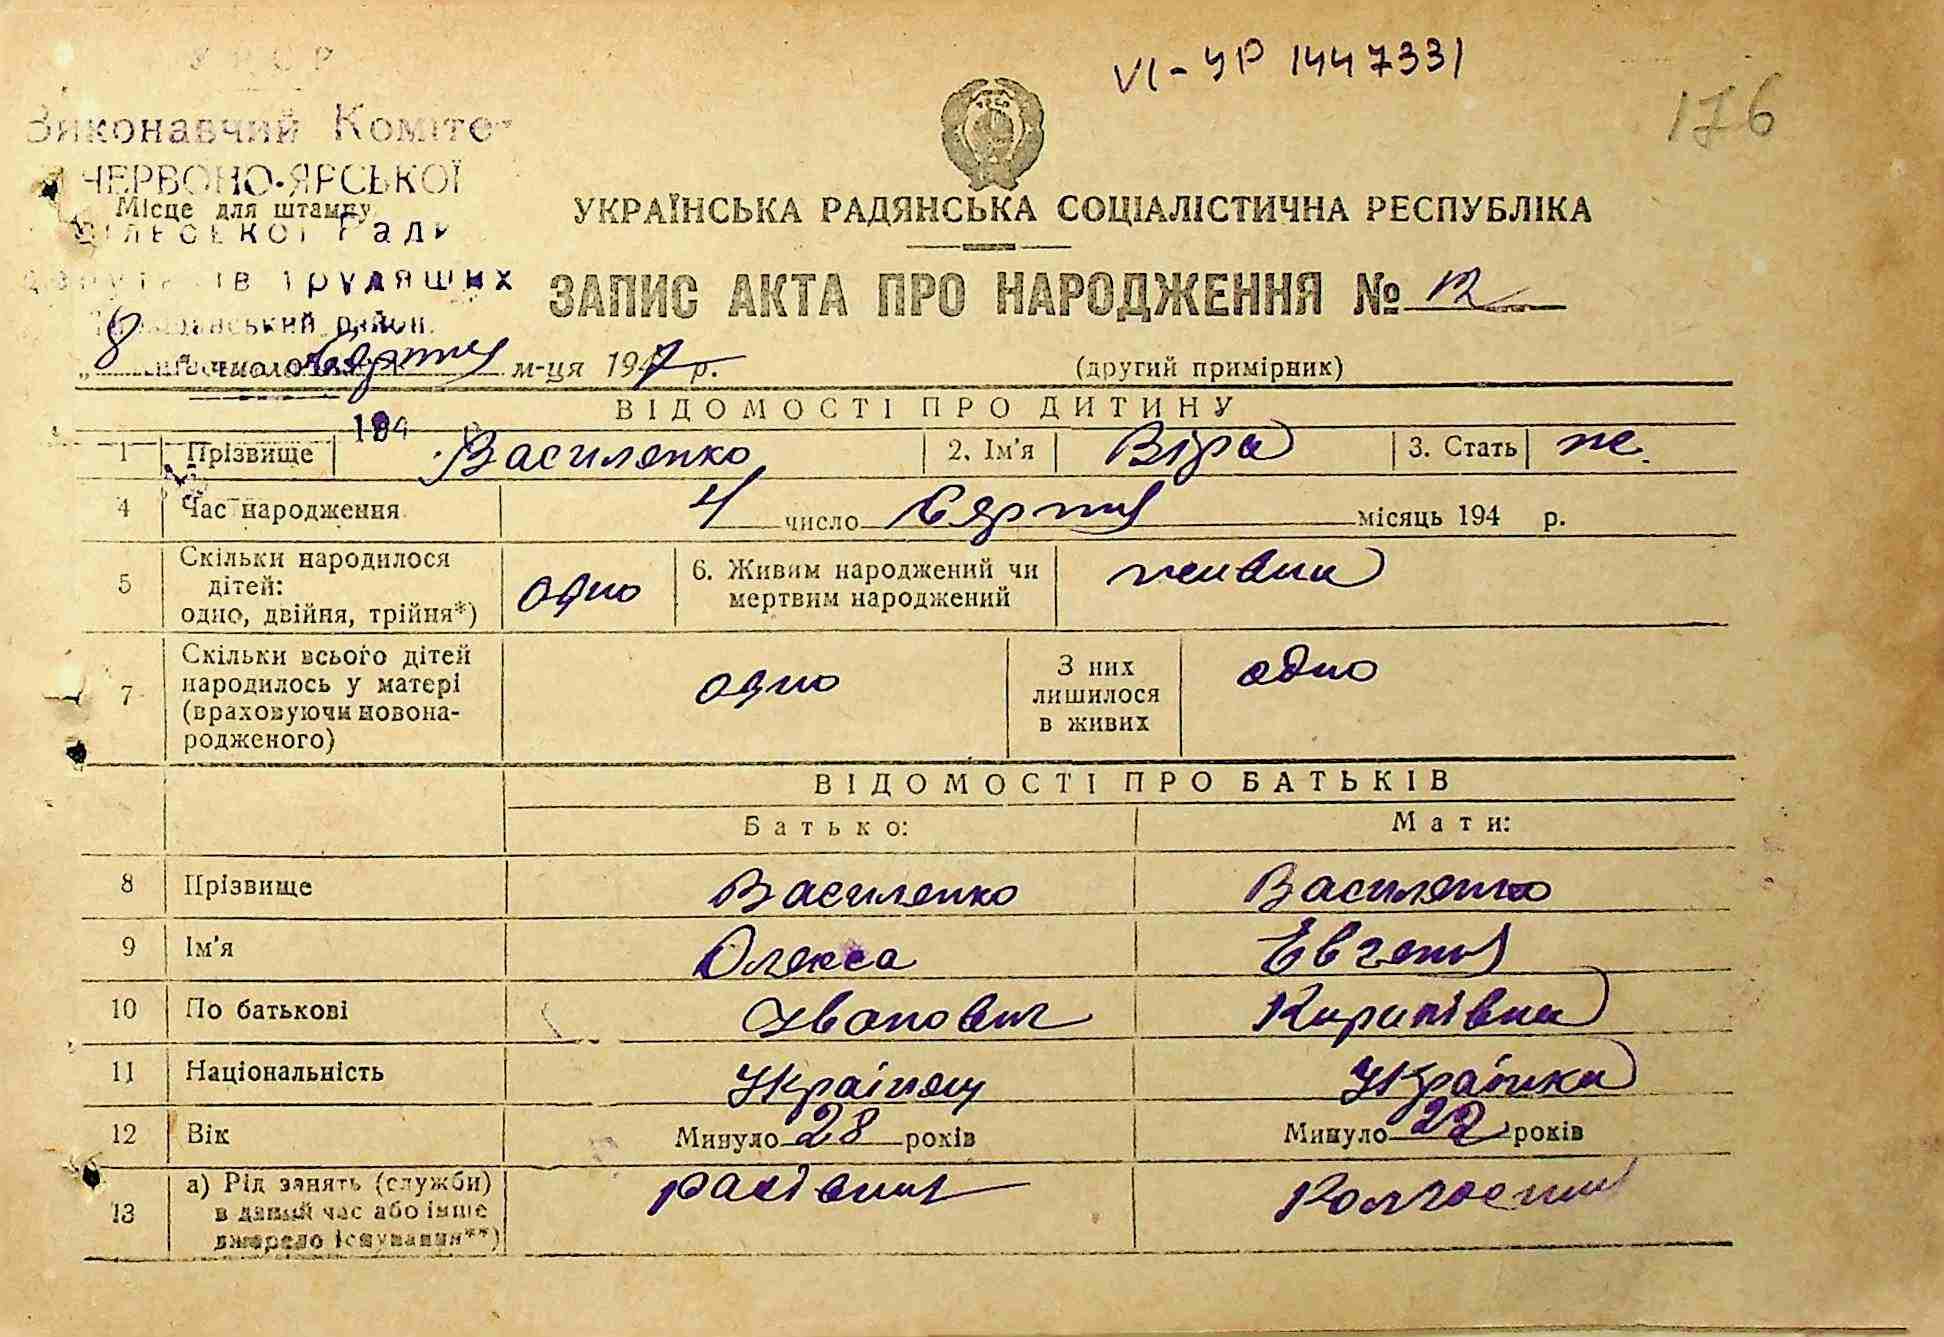 У Р С Р
VI-УР 1447331
176
Виконавчий Коміте
ЧЕРВОНО-ЯРСЬКОЇ
Місце для штампу
сільської Ради
депутатів трудящих
УКРАЇНСЬКА РАДЯНСЬКА СОЦІАЛІСТИЧНА РЕСПУБЛІКА
ЗАПИС АКТА ПРО НАРОДЖЕННЯ № 12
район.
„8" число Серпня м-ця 1947 р.
(другий примірник)
194
ВІДОМОСТІ ПРО ДИТИНУ
1 Прізвище Василенко 2. Ім'я Віра 3. Стать ж.
4 Час народження 4 число Серпня місяць 194 р.
5 Скільки народилося дітей: одно, двійня, трійня*) одно 6. Живим народжений чи мертвим народжений живим
7 Скільки всього дітей народилось у матері (враховуючи новонародженого) одно З них лишилося в живих одно
ВІДОМОСТІ ПРО БАТЬКІВ
Батько: Мати:
8 Прізвище Василенко Василенко
9 Ім'я Олекса Евгенія
10 По батькові Іванович Кирилівна
11 Національність Українец Українка
12 Вік Минуло 28 років Минуло 22 років
13 а) Рід занять (служби) в даний час або інше джерело існування**)